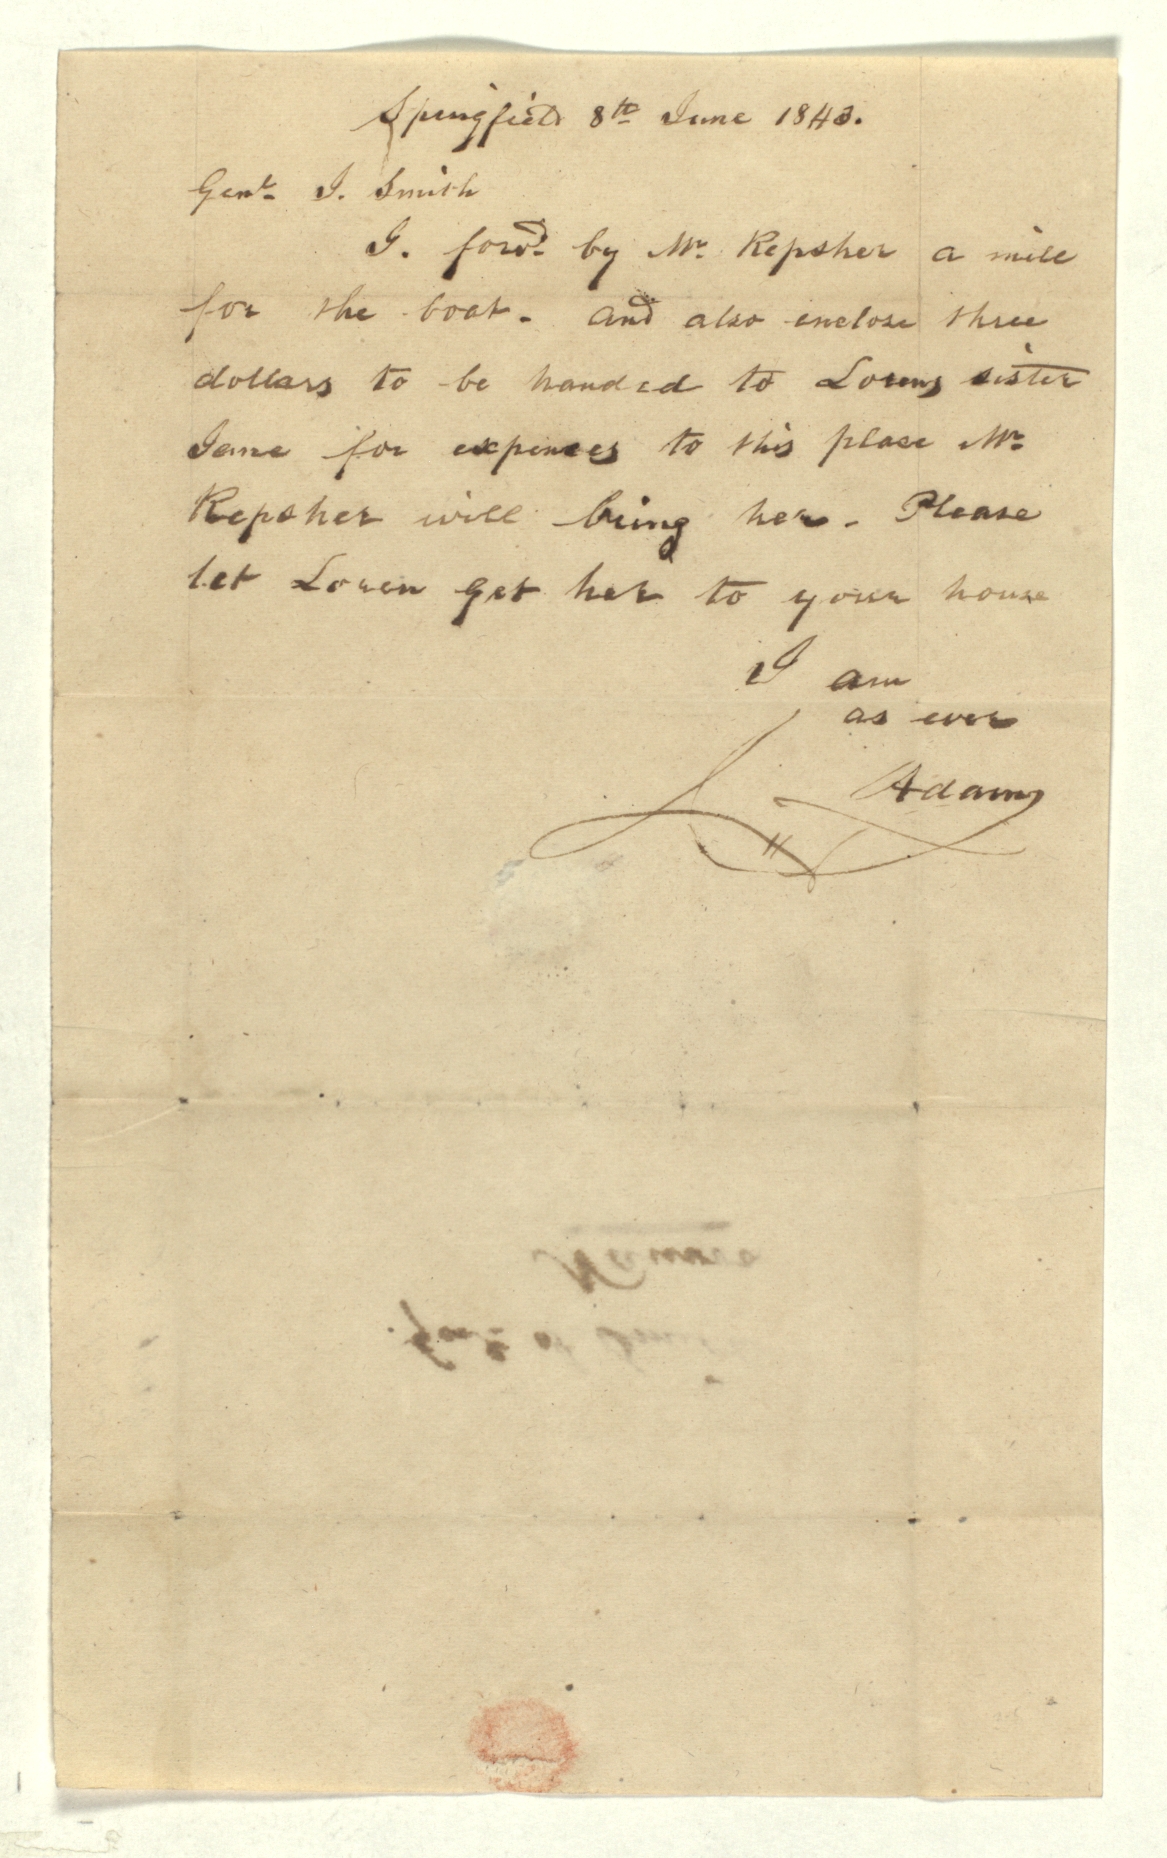 Springfield 8th June 1843.
Genl. J. Smith
I. forwd. by Mr. Repsher a mill
for the boat. and also enclose three
dollars to be handed to Lorens sister
Jane for expences to this place Mr.
Repsher will bring her. Please
let Loren get her to your house
I am
as ever
Adams
Nauvoo
Genl. J Smith